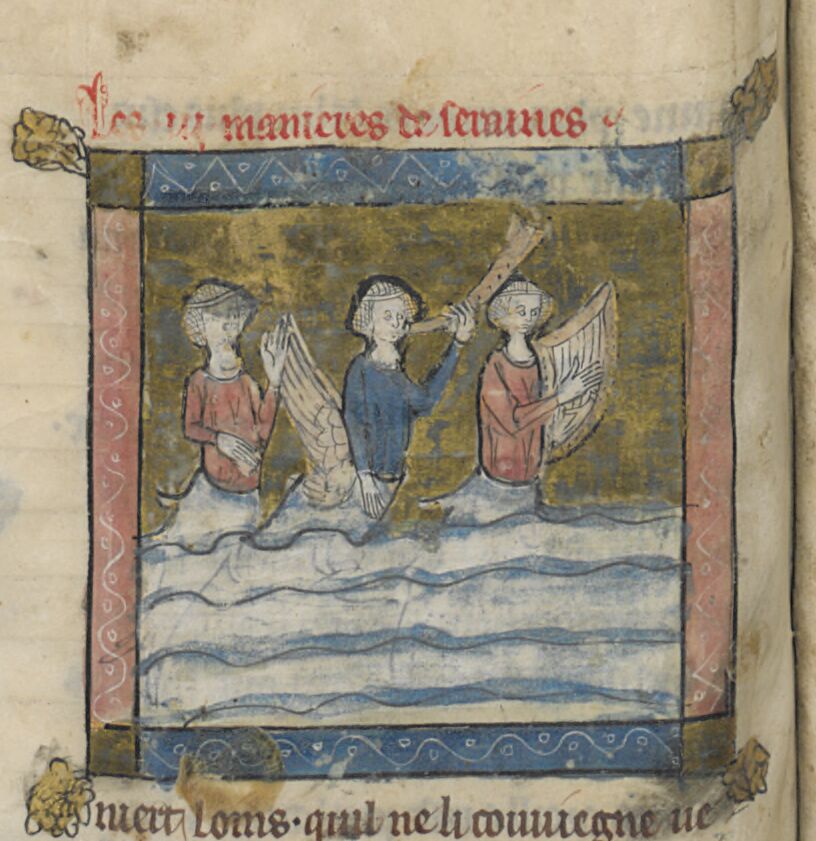 Les iij manieres de seraines
niert loins · quil ne li couuiegne ue